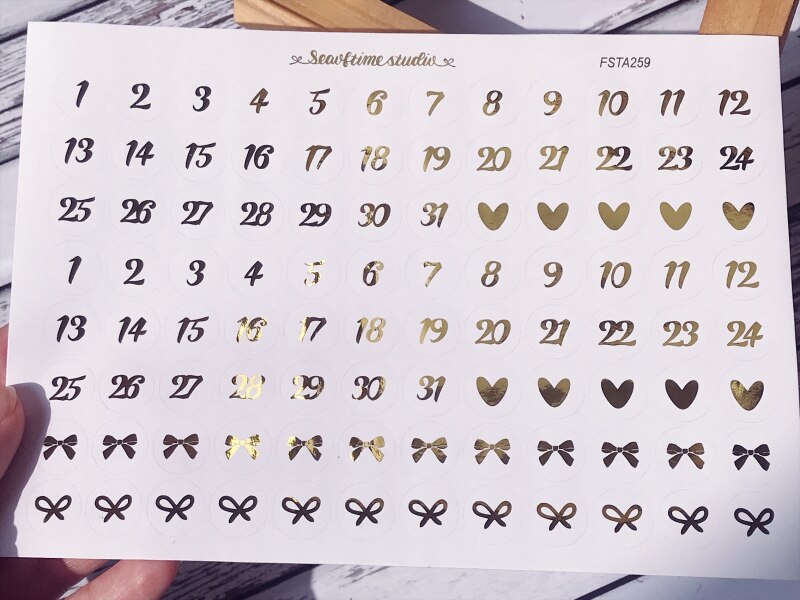 Seavftime studio
FSTA259
1 2 3 4 5 6 7 8 9 10 11 12
13 14 15 16 17 18 19 20 21 22 23 24
25 26 27 28 29 30 31
1 2 3 4 5 6 7 8 9 10 11 12
13 14 15 16 17 18 19 20 21 22 23 24
25 26 27 28 29 30 31